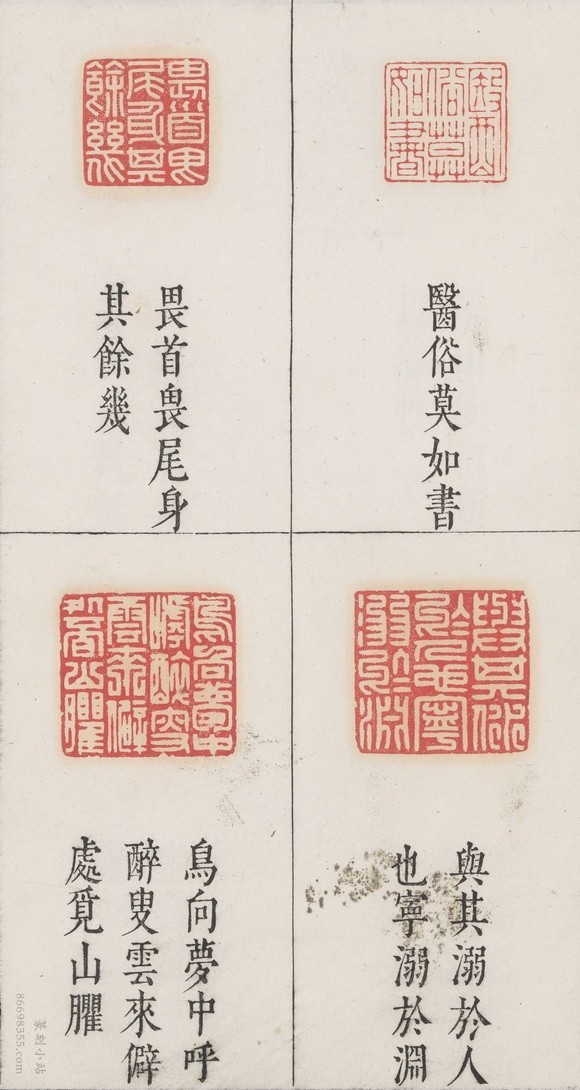 醫俗莫如書
畏首畏尾身
其餘幾
與其溺於人
也寧溺於淵
鳥向夢中呼
醉叟雲來僻
處覓山臞
篆刻小站
86698355.com